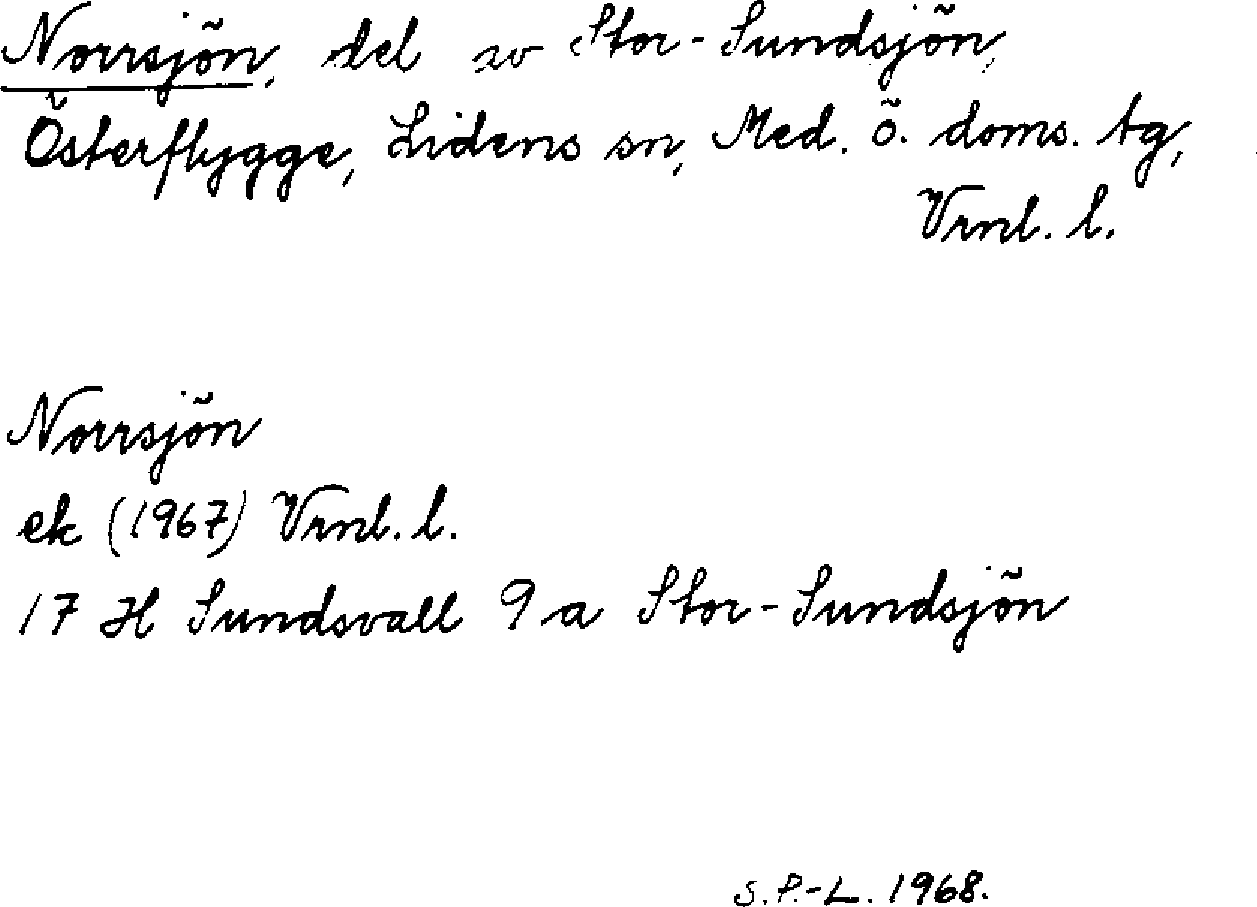 Norrsjön, del av Stor-Sundsjön,
Österflygge, Lidens sn, Med. ö. doms. tg,
Vrnl. l.
Norrsjön
ek (1967) Vrnl. l.
17 H Sundsvall 9 a Stor-Sundsjön
S.P.-L. 1968.